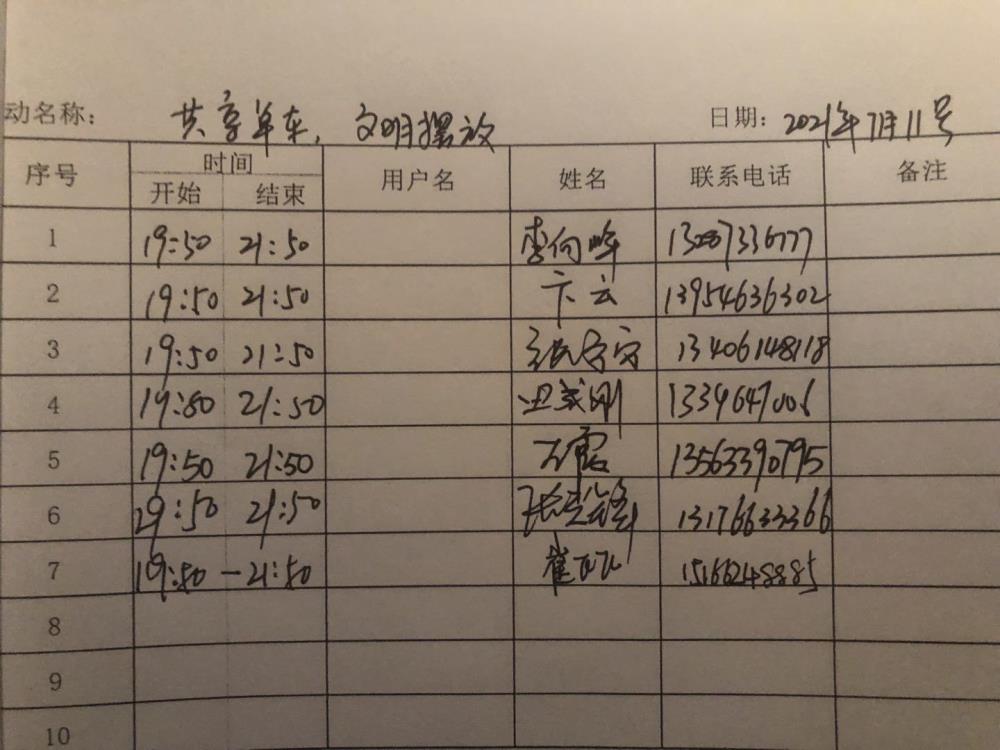 动名称： 共享单车，文明摆放 日期：2021年7月11号
序号 时间 用户名 姓名 联系电话 备注
开始 结束
1 19:50 21:50 李向峰 13287336777
2 19:50 21:50 卞云 13954636302
3 19:50 21:50 13406148118
4 19:50 21:50 13396470006
5 19:50 21:50 王霞 13563390795
6 29:50 21:50 13176633366
7 19:50 — 21:50 崔 15166248885
8
9
10